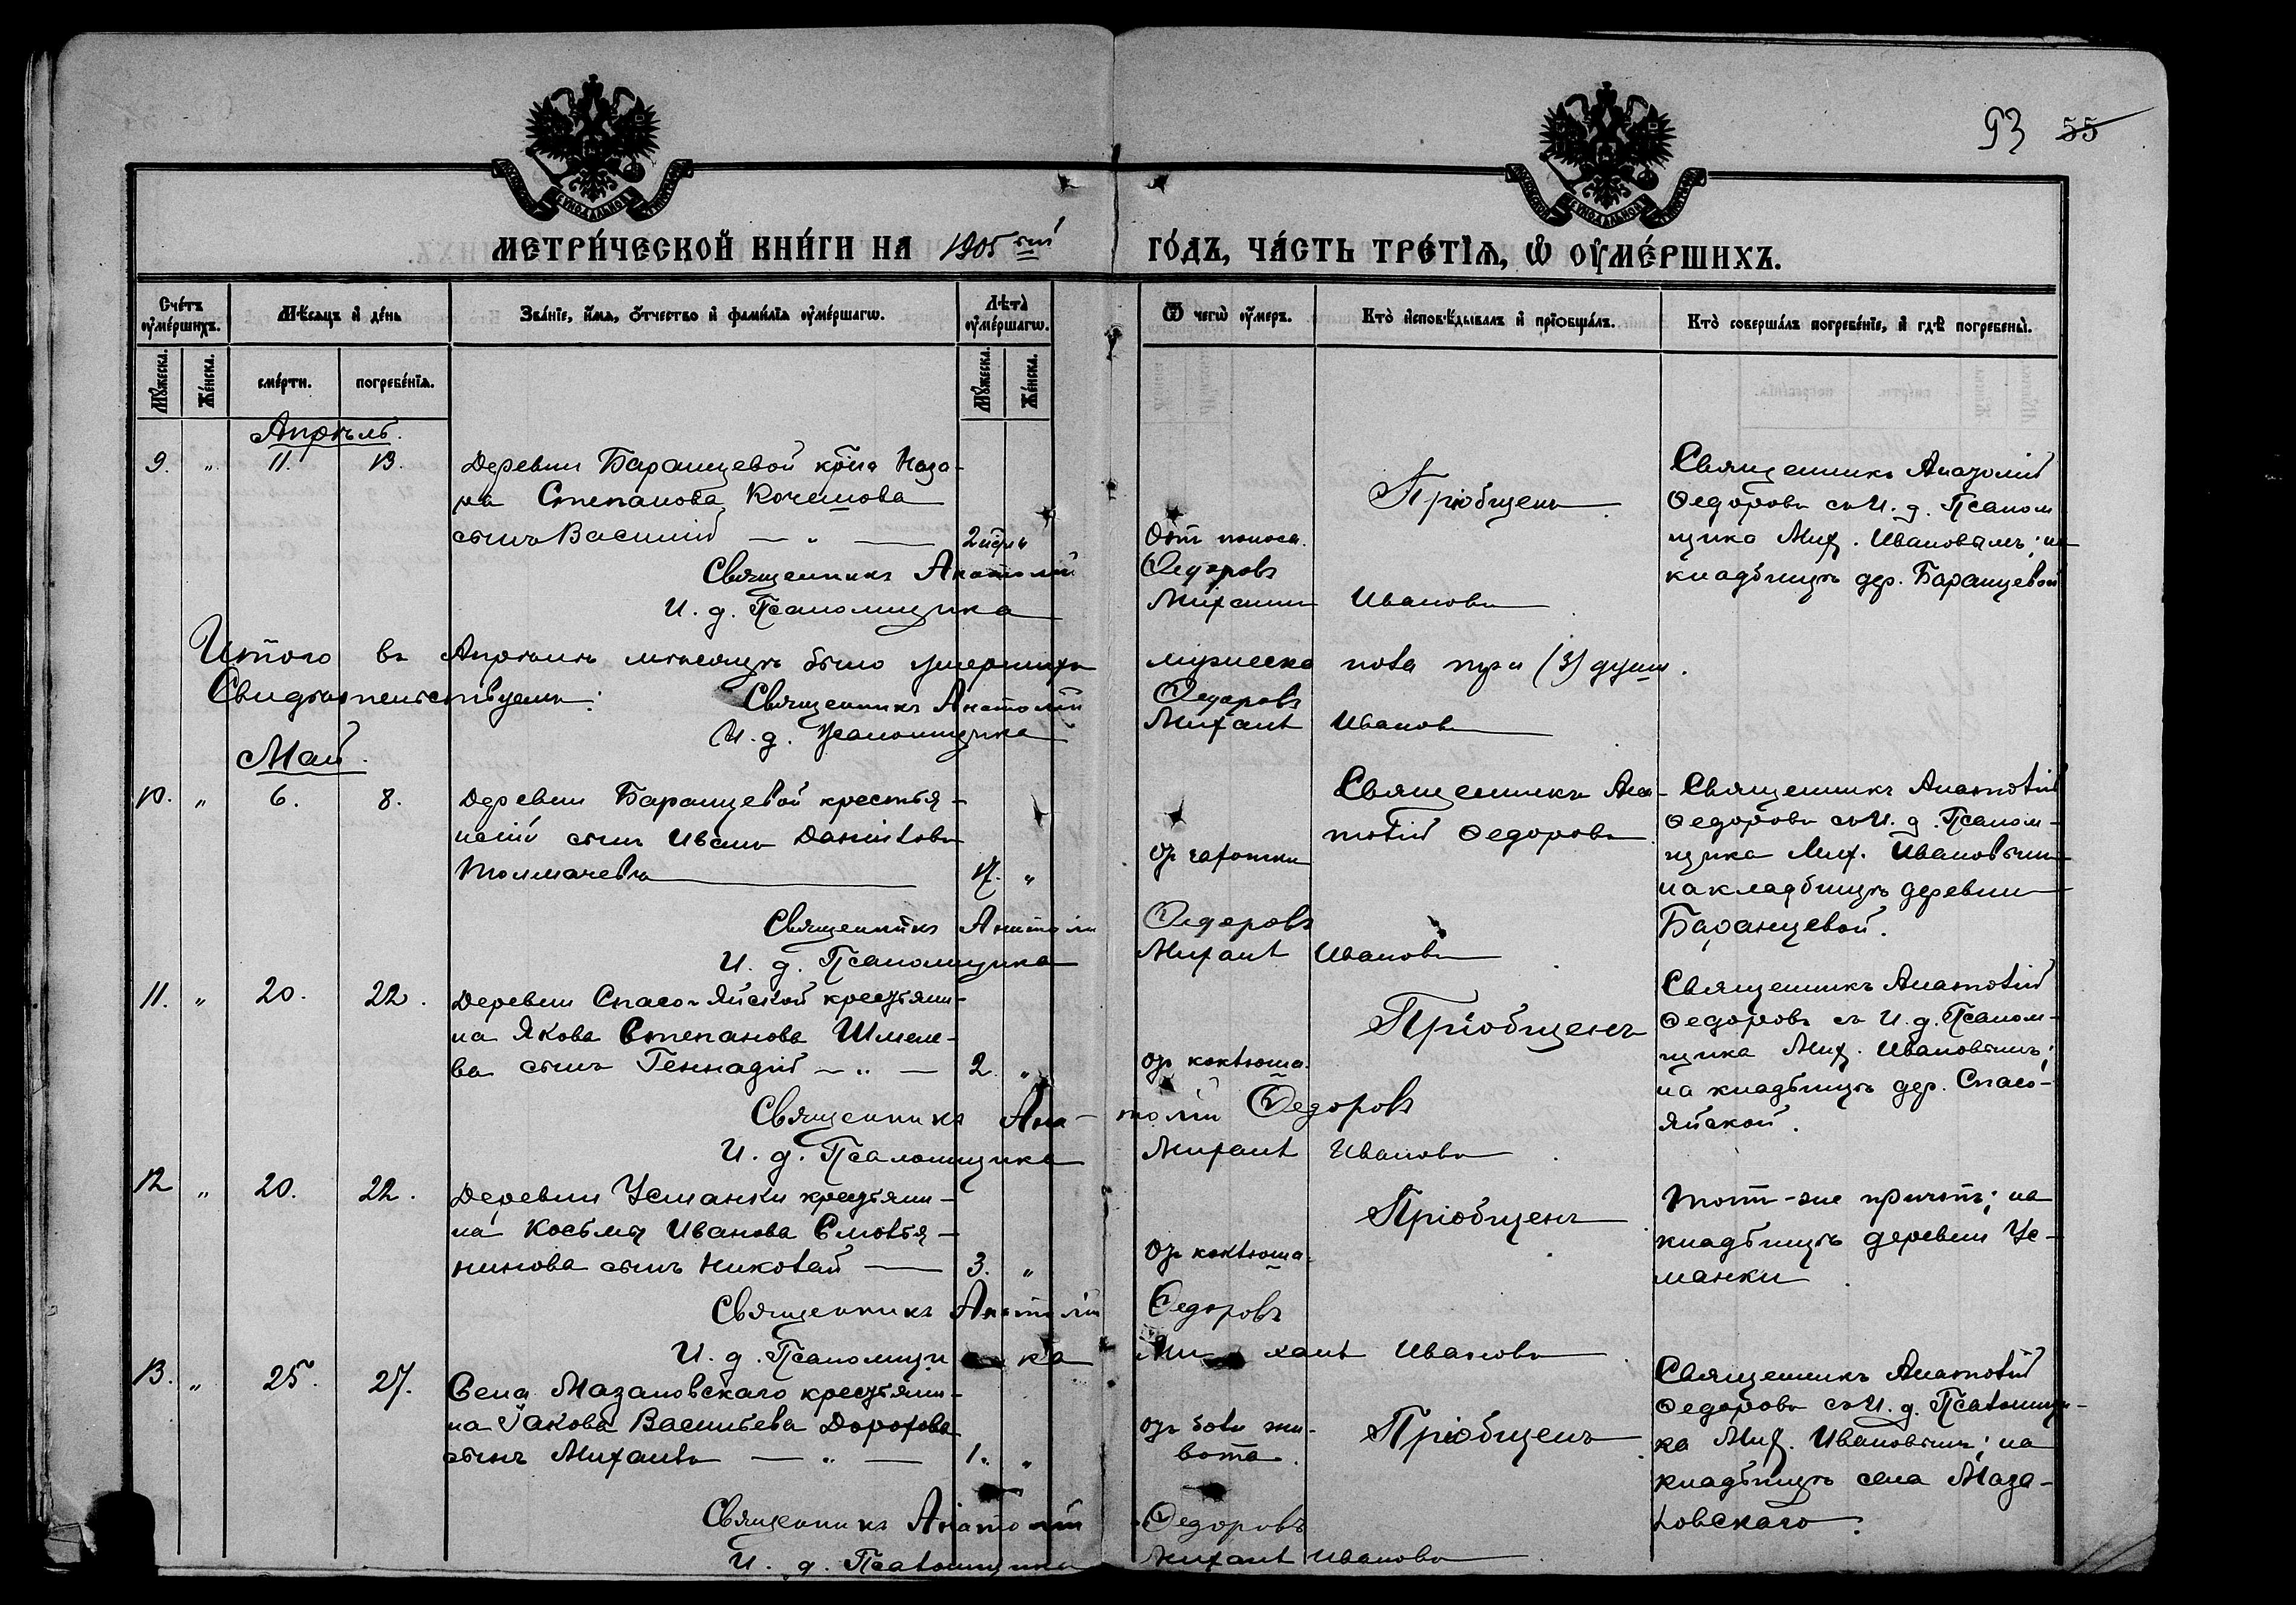 93 55
МЕТРИ́ЧЕСКОЙ КНИ́ГИ НА 1905 ый ГО́ДЪ, ЧА́СТЬ ТРЕ́ТІѦ, Ѡ ОУМЕ́РШИХЪ.
Сче́тъ оумéршихъ.
Мѣ́сяцъ и де́нь
Зва́ніе, и́мя, о́тчество и фами́лія оуме́ршагѡ.
Лѣта̀ оуме́ршагѡ.
Ѿ чегѡ̀ оу́меръ.
Кто̀ исповѣ́дывалъ и пріобща́лъ.
Кто̀ соверша́лъ погребе́ніе, и гдѣ̀ погребены̀.
Му́жеска. Же́нска. сме́рти. погребе́нія. Му́жеска. Же́нска.
Апрѣль.
9. " 11. 13. Деревни Баранцевой кр-на Наза-
ра Степанова Кочешова
сынъ Василій — " — 2 "
Отъ поноса.
Пріобщенъ
Священникъ Анатолій
Ѳедоровъ съ И. д. Псалом
щика Мих. Ивановымъ; на
кладбищѣ дер. Баранцевой
Священникъ Анатолій Ѳедоровъ
И. д. Псаломщика Михаилъ Ивановъ
Итого въ Апрѣлѣ мѣсяцѣ было умершихъ мужеска пола три (3) души.
Свидѣтельствуемъ: Священникъ Анатолій Ѳедоровъ
И. д. Псаломщика Михаилъ Ивановъ
Май.
10. " 6. 8. Деревни Баранцевой крестья-
нскій сынъ Иванъ Даниловъ
Толмачевъ 17. "
От чахотки
Священникъ Ана-
толій Ѳедоровъ
Священникъ Анатолій
Ѳедоровъ съ И. д. Псалом-
щика Мих. Ивановымъ
на кладбищѣ деревни
Баранцевой.
Священникъ Анатолій Ѳедоровъ
И. д. Псаломщика Михаилъ Ивановъ
11. " 20. 22. Деревни Спасо-Яйской крестьяни-
на Якова Степанова Шмеле-
ва сынъ Геннадій — " — 2. "
От коклюша.
Пріобщенъ
Священникъ Анатолій
Ѳедоровъ съ И. д. Псалом-
щика Мих. Ивановымъ;
на кладбищѣ дер. Спасо-
Яйской.
Священникъ Ана-толій Ѳедоровъ
И. д. Псаломщика Михаилъ Ивановъ
12 " 20. 22. Деревни Усманки крестьяни-
на Косьмы Иванова Смолья-
нинова сынъ Николай — 3. "
От коклюша.
Пріобщенъ
Тотъ-же причтъ; на
кладбищѣ деревни Ус-
манки.
Священникъ Анатолій Ѳедоровъ
И. д. Псаломщика Михаилъ Ивановъ
13. " 25. 27. Села Мазаловскаго крестьяни-
на Іакова Васильева Дорохова
сынъ Михаилъ — " — 1. "
От боли жи-
вота.
Пріобщенъ
Священникъ Анатолій
Ѳедоровъ съ И. д. Псаломщи-
ка Мих. Ивановымъ; на
кладбищѣ села Маза-
ловскаго.
Священникъ Анатолій Ѳедоровъ
И. д. Псаломщика Михаилъ Ивановъ